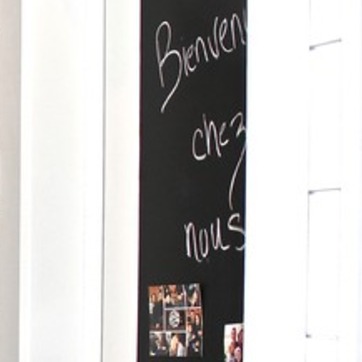 Bienven
chez
nous